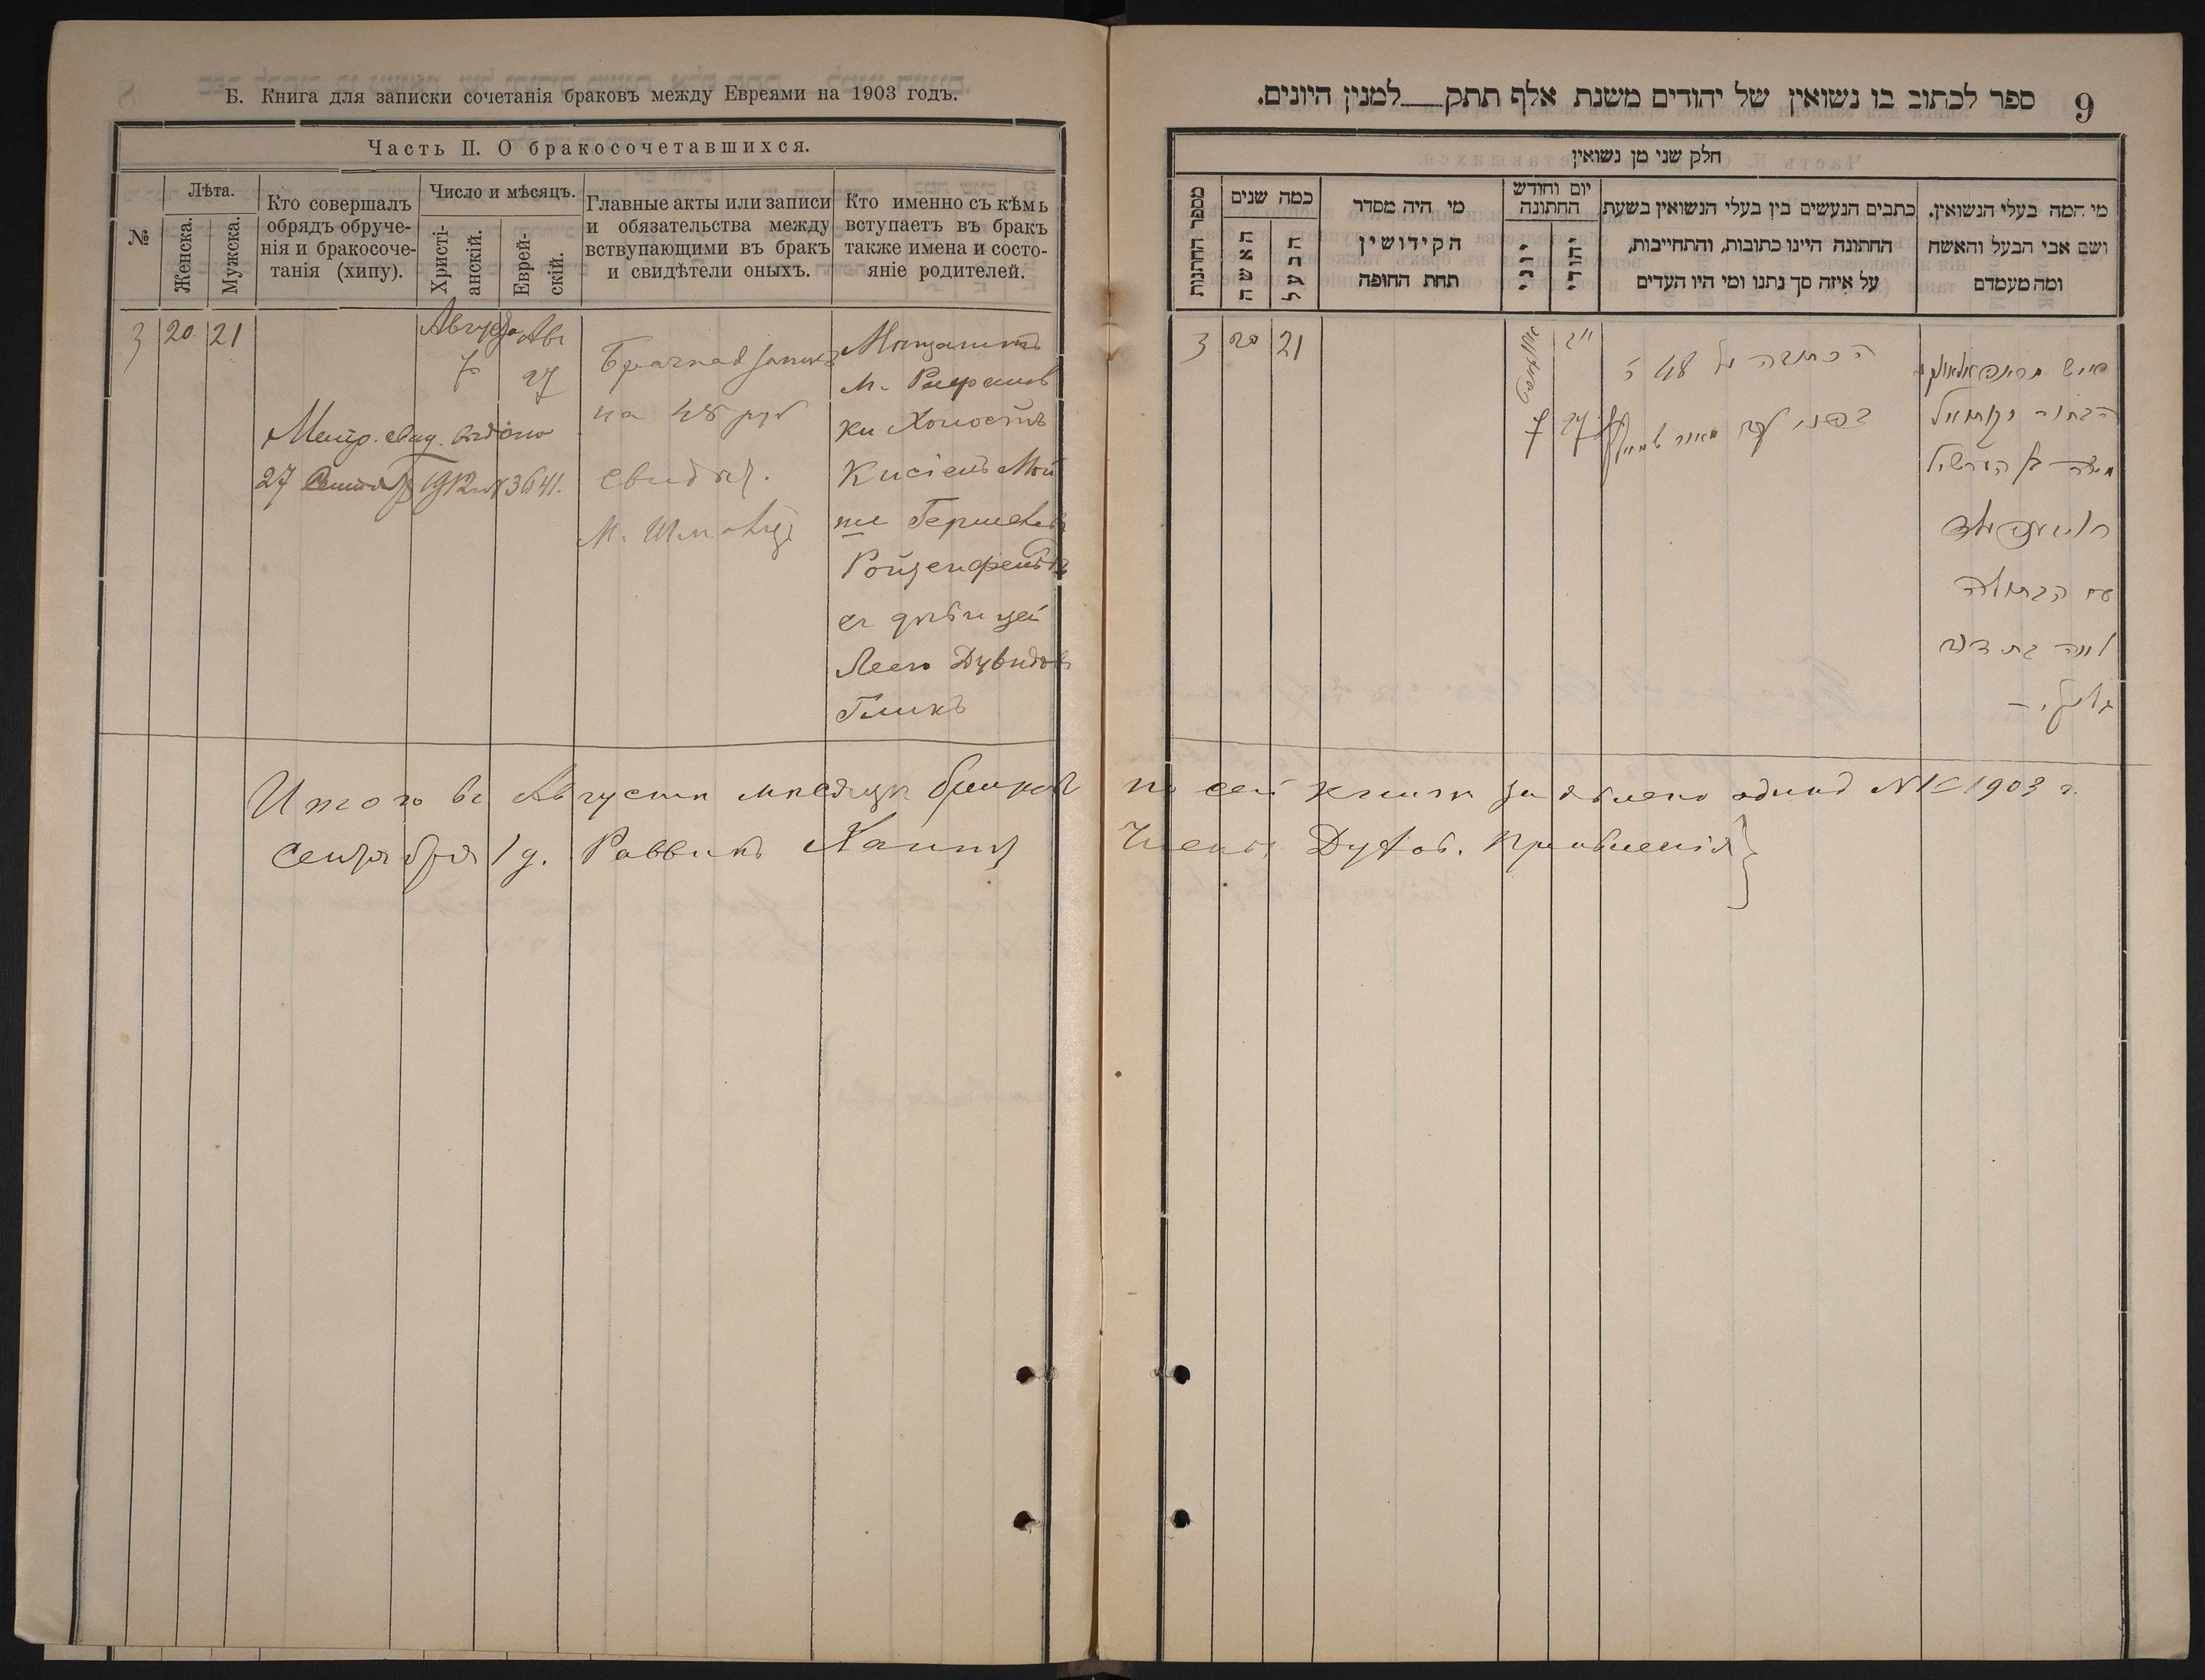 Б. Книга для записки сочетанія браковъ между Евреями на 1903 годъ.
Часть II. О бракосочетавшихся.
№
Лѣта.
Женска.
Мужска.
Кто совершалъ
обрядъ обруче-
нія и бракосоче-
танія (хипу).
Число и мѣсяцъ.
Христі-
анскій.
Еврей-
скій.
Главные акты или записи
и обязательства между
вствупающими въ бракъ
и свидѣтели оныхъ.
Кто именно съ кѣмъ
вступаетъ въ бракъ
также имена и состо-
яніе родителей.
3 20. 21
Августа
7
Авг
27
Метр. свид. выдано
27 1912 № 3641.
Брачная запись
на 48 руб
свидѣт.
Мѣщанинъ
м.
ки Холостъ
Кисіель Мой
ше Гершевъ
съ дѣвицей
Леею Дувидов
Гликъ
Итого въ Августѣ мѣсяцѣ браковъ по сей книгѣ заявлено одинъ № 1903 г.
Сентября 1 д. Раввинъ Членъ Духов. Правленія
9
ספר לכתוב בו נשואין של יהודים משנת אלף תתק למנין היונים.
חלק שני מן נשואין
מספר החתונות
כמה שנים
האשה
הבעל
מי היה מסדר
הקידושין
תחת החופה
יום וחודש
החתונה
יוני
יהודי
כתבים הנעשים בין בעלי הנשואין בשעת
החתונה היינו כתובות, והתחייבות,
על איזה סך נתנו ומי היו העדים
מי המה בעלי הנשואין.
ושם אבי הבעל והאשה
ומה מעמדם
3 20 21
7
27
הכתובה על 48
הבחור יקותיאל
משה בן הערשיל
עם הבתולה
לאה בת דוד
גליק